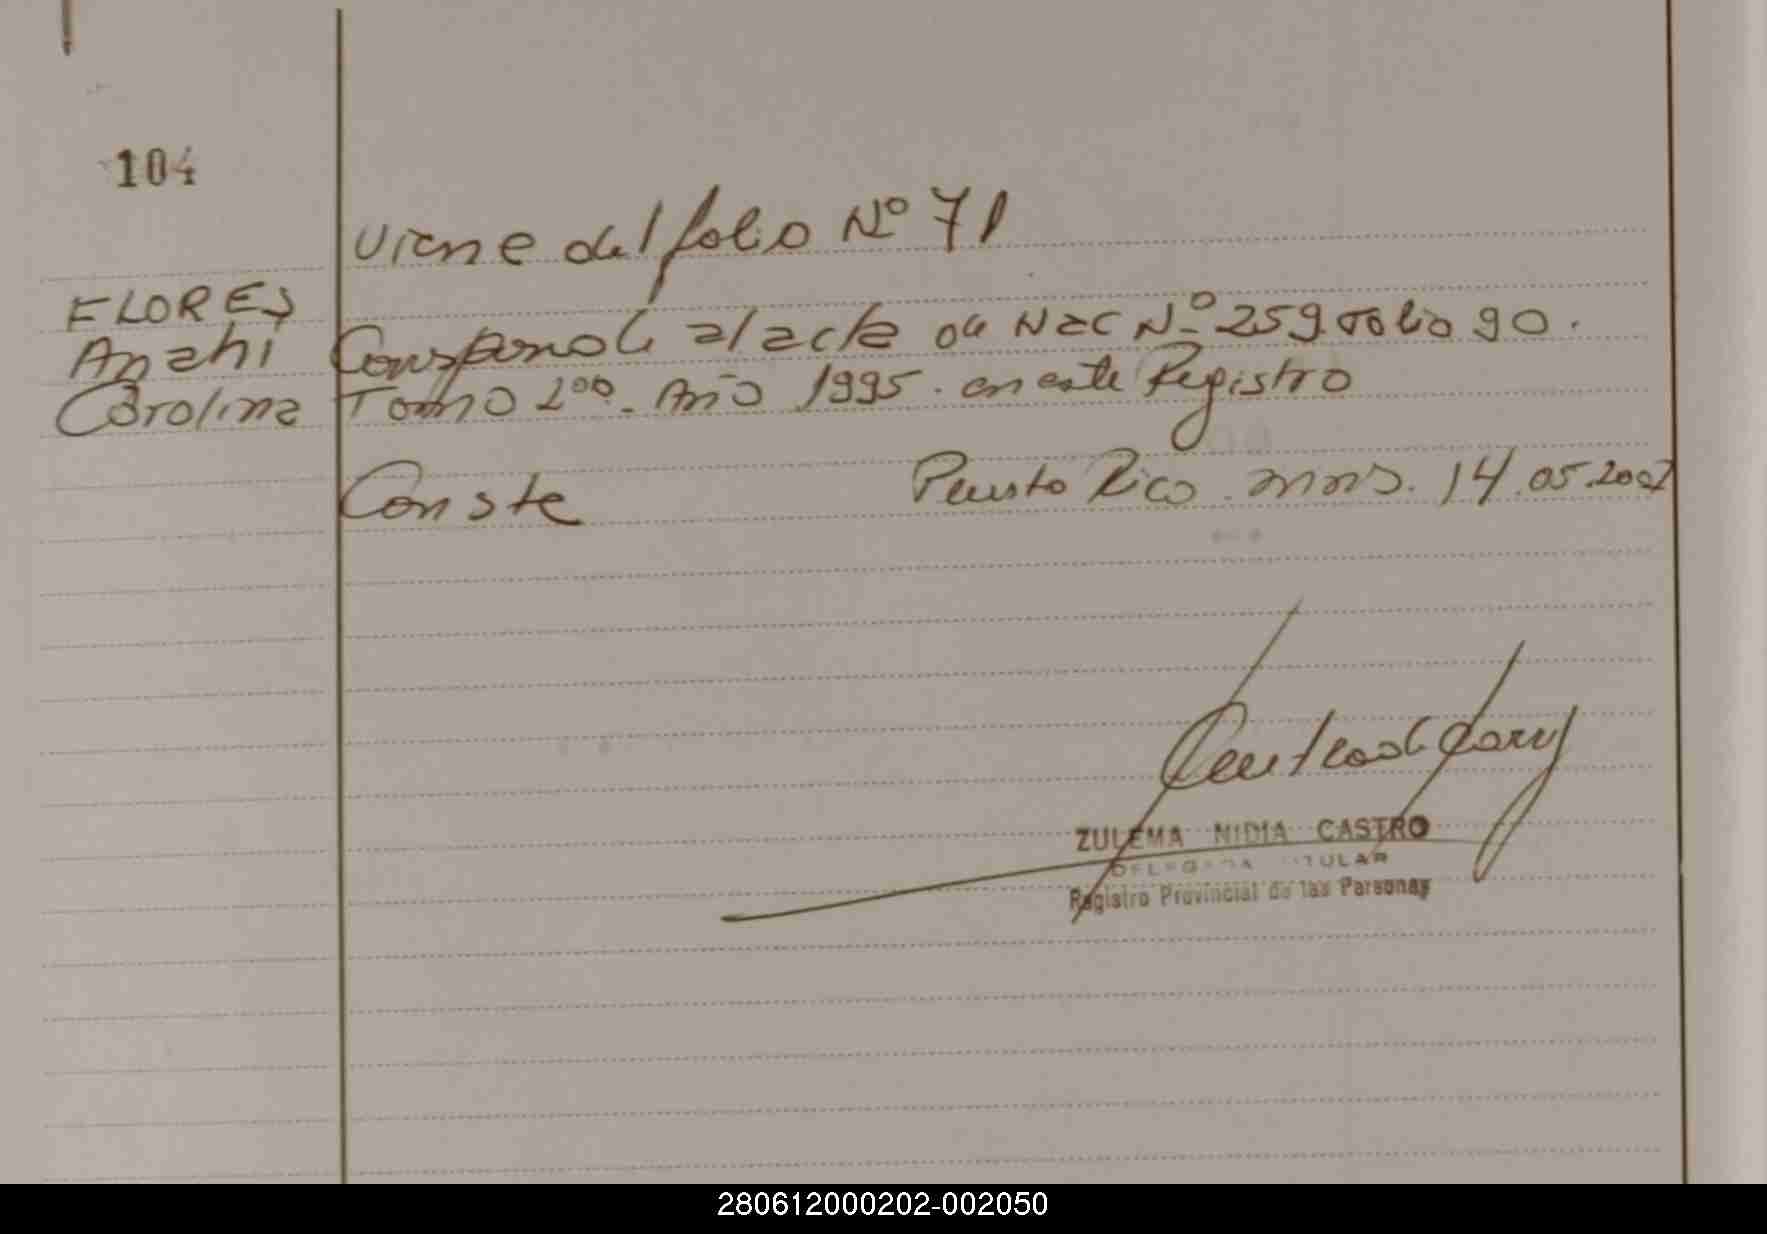 104
Viene del folio Nº 71
FLORES
Anahi
Carolina
Corresponde al acta de Nac Nº 259 Folio 90.
Tomo 2do. Año 1995. en este Registro
Conste
Puerto Rico. mns. 14.05.2007
ZULEMA NIDIA CASTRO
DELEGADA TITULAR
Registro Provincial de las Personas
280612000202-002050